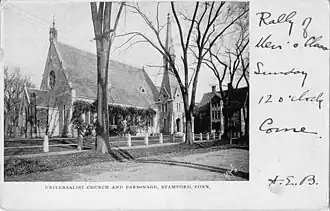 Rally of
Men's Class
Sunday
12 o'clock
Come
A. E. B.
UNIVERSALIST CHURCH AND PARSONAGE, STAMFORD, CONN.